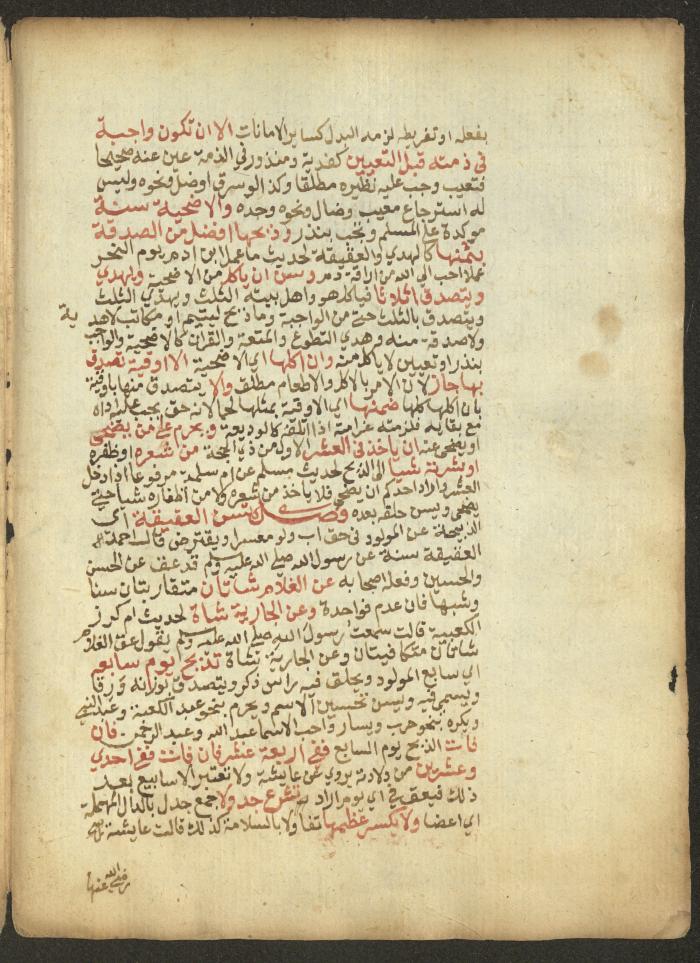 بفعله او تفريطه لزمه البدل كساير الامانات الا ان تكون واجبة
في ذمته قبل التعيين كفدية ومنذور في الذمة عين عنه صحيحا
فتعيب وجب عليه نظيره مطلقا وكذا لو سرق او ضل ونحوه وليس
له استرجاع معيب وضال ونحوه وجده والاضحية سنة
موكدة على المسلم وتجب بنذر وذبحها افضل من الصدقة
بثمنها كالهدي والعقيقة لحديث ما عمل ابن ادم يوم النحر
عملا احب الى الله من اراقة دم وسن ان ياكل من الاضحية ويهدي
ويتصدق اثلاثا فياكل هو واهل بيته الثلث ويهدي الثلث
ويتصدق بالثلث حتى من الواجبة وما ذبح ليتيم او مكاتب لا هدية
ولا صدقة منه وهدي التطوع والمتعة والقران كالاضحية والواجب
بنذر او تعيين لا ياكل منه وان اكلها اي الاضحية الا اوقية تصدق
بها جاز لان الامر بالاكل والاطعام مطلق والا يتصدق منها باوقية
بان اكلها كلها ضمنها اي الاوقية بمثلها لحما لانه حق يجب عليه اداه
مع بقايه فلزمته غرامته اذا اتلفه كالوديعة ويحرم على من يضحي
او يضحى عنه ان ياخذ في العشر الاول من ذي الحجة من شعره او ظفره
او بشرته شيا الى الذبح لحديث مسلم عن ام سلمة مرفوعا اذا دخل
العشر واراد احدكم ان يضحي فلا ياخذ من شعره ولا من اظفاره شيا حتى
يضحي ويسن حلقه بعده فصل تسن العقيقة اي
الذبيحة عن المولود في حق اب ولو معسرا ويقترض قال احمد
العقيقة سنة عن رسول الله صلى الله عليه وسلم قد عق عن الحسن
والحسين وفعله اصحابه عن الغلام شاتان متقاربتان سنا
وشبها فان عدم فواحدة وعن الجارية شاة لحديث ام كرز
الكعبية قالت سمعت رسول الله صلى الله عليه وسلم يقول عن الغلام
شاتان متكافيتان وعن الجارية شاة تذبح يوم سابعه
اي سابع المولود ويحلق فيه راس ذكر ويتصدق بوزنه ورقا
ويسمى فيه ويسن تحسين الاسم ويحرم بنحو عبد الكعبة وعبد النبي
ويكره بنحو حرب ويسار واحب الاسما عبد الله وعبد الرحمن فان
فات الذبح يوم السابع ففي اربعة عشر فان فات ففي احدي
وعشرين من ولادته يروى عن عايشة ولا تعتبر الاسابيع بعد
ذلك فيعق في اي يوم اراد تنزع جدولا جمع جدل بالدال المهملة
اي اعضا ولا يكسر عظمها تفاولا بالسلامة كذلك قالت عايشة
رضي الله عنها